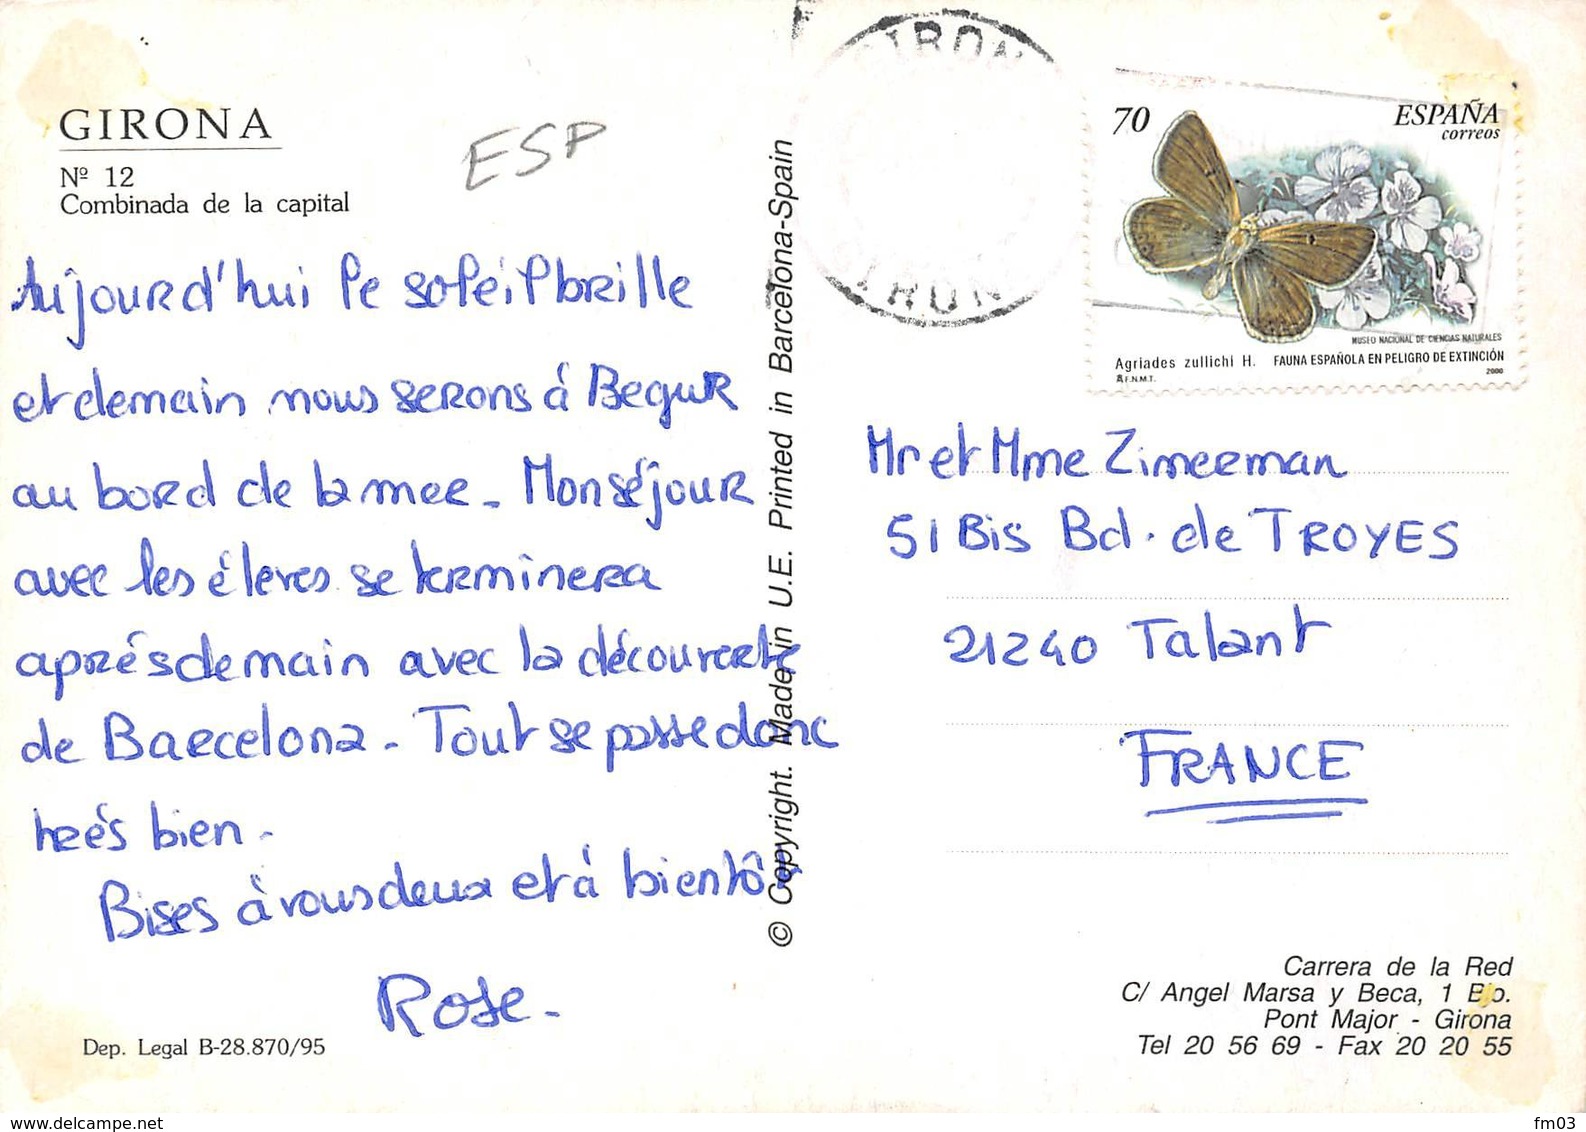 GIRONA
Nº 12
Combinada de la capital
ESP
Aujourd'hui le soleil brille
et demain nous serons à Begur
au bord de la mer - Mon séjour
avec les élèves se terminera
après demain avec la découverte
de Barcelona - Tout se passe donc
très bien -
Bises à vous deux et à bientôt
Rose -
Dep. Legal B-28.870/95
© Copyright. Made in U.E. Printed in Barcelona-Spain
GIRONA
GIRONA
70
ESPAÑA
correos
MUSEO NACIONAL DE CIENCIAS NATURALES
Agriades zullichi H. FAUNA ESPAÑOLA EN PELIGRO DE EXTINCIÓN
F.N.M.T.
2000
Mr et Mme Zimmerman
51 Bis Bd. de TROYES
21240 Talant
FRANCE
Carrera de la Red
C/ Angel Marsa y Beca, 1 Bjo.
Pont Major - Girona
Tel 20 56 69 - Fax 20 20 55
www.delcampe.net
fm03